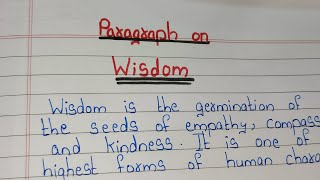 Paragraph on
Wisdom
Wisdom is the germination of
the seeds of empathy, compass
and kindness. It is one of
highest forms of human chara